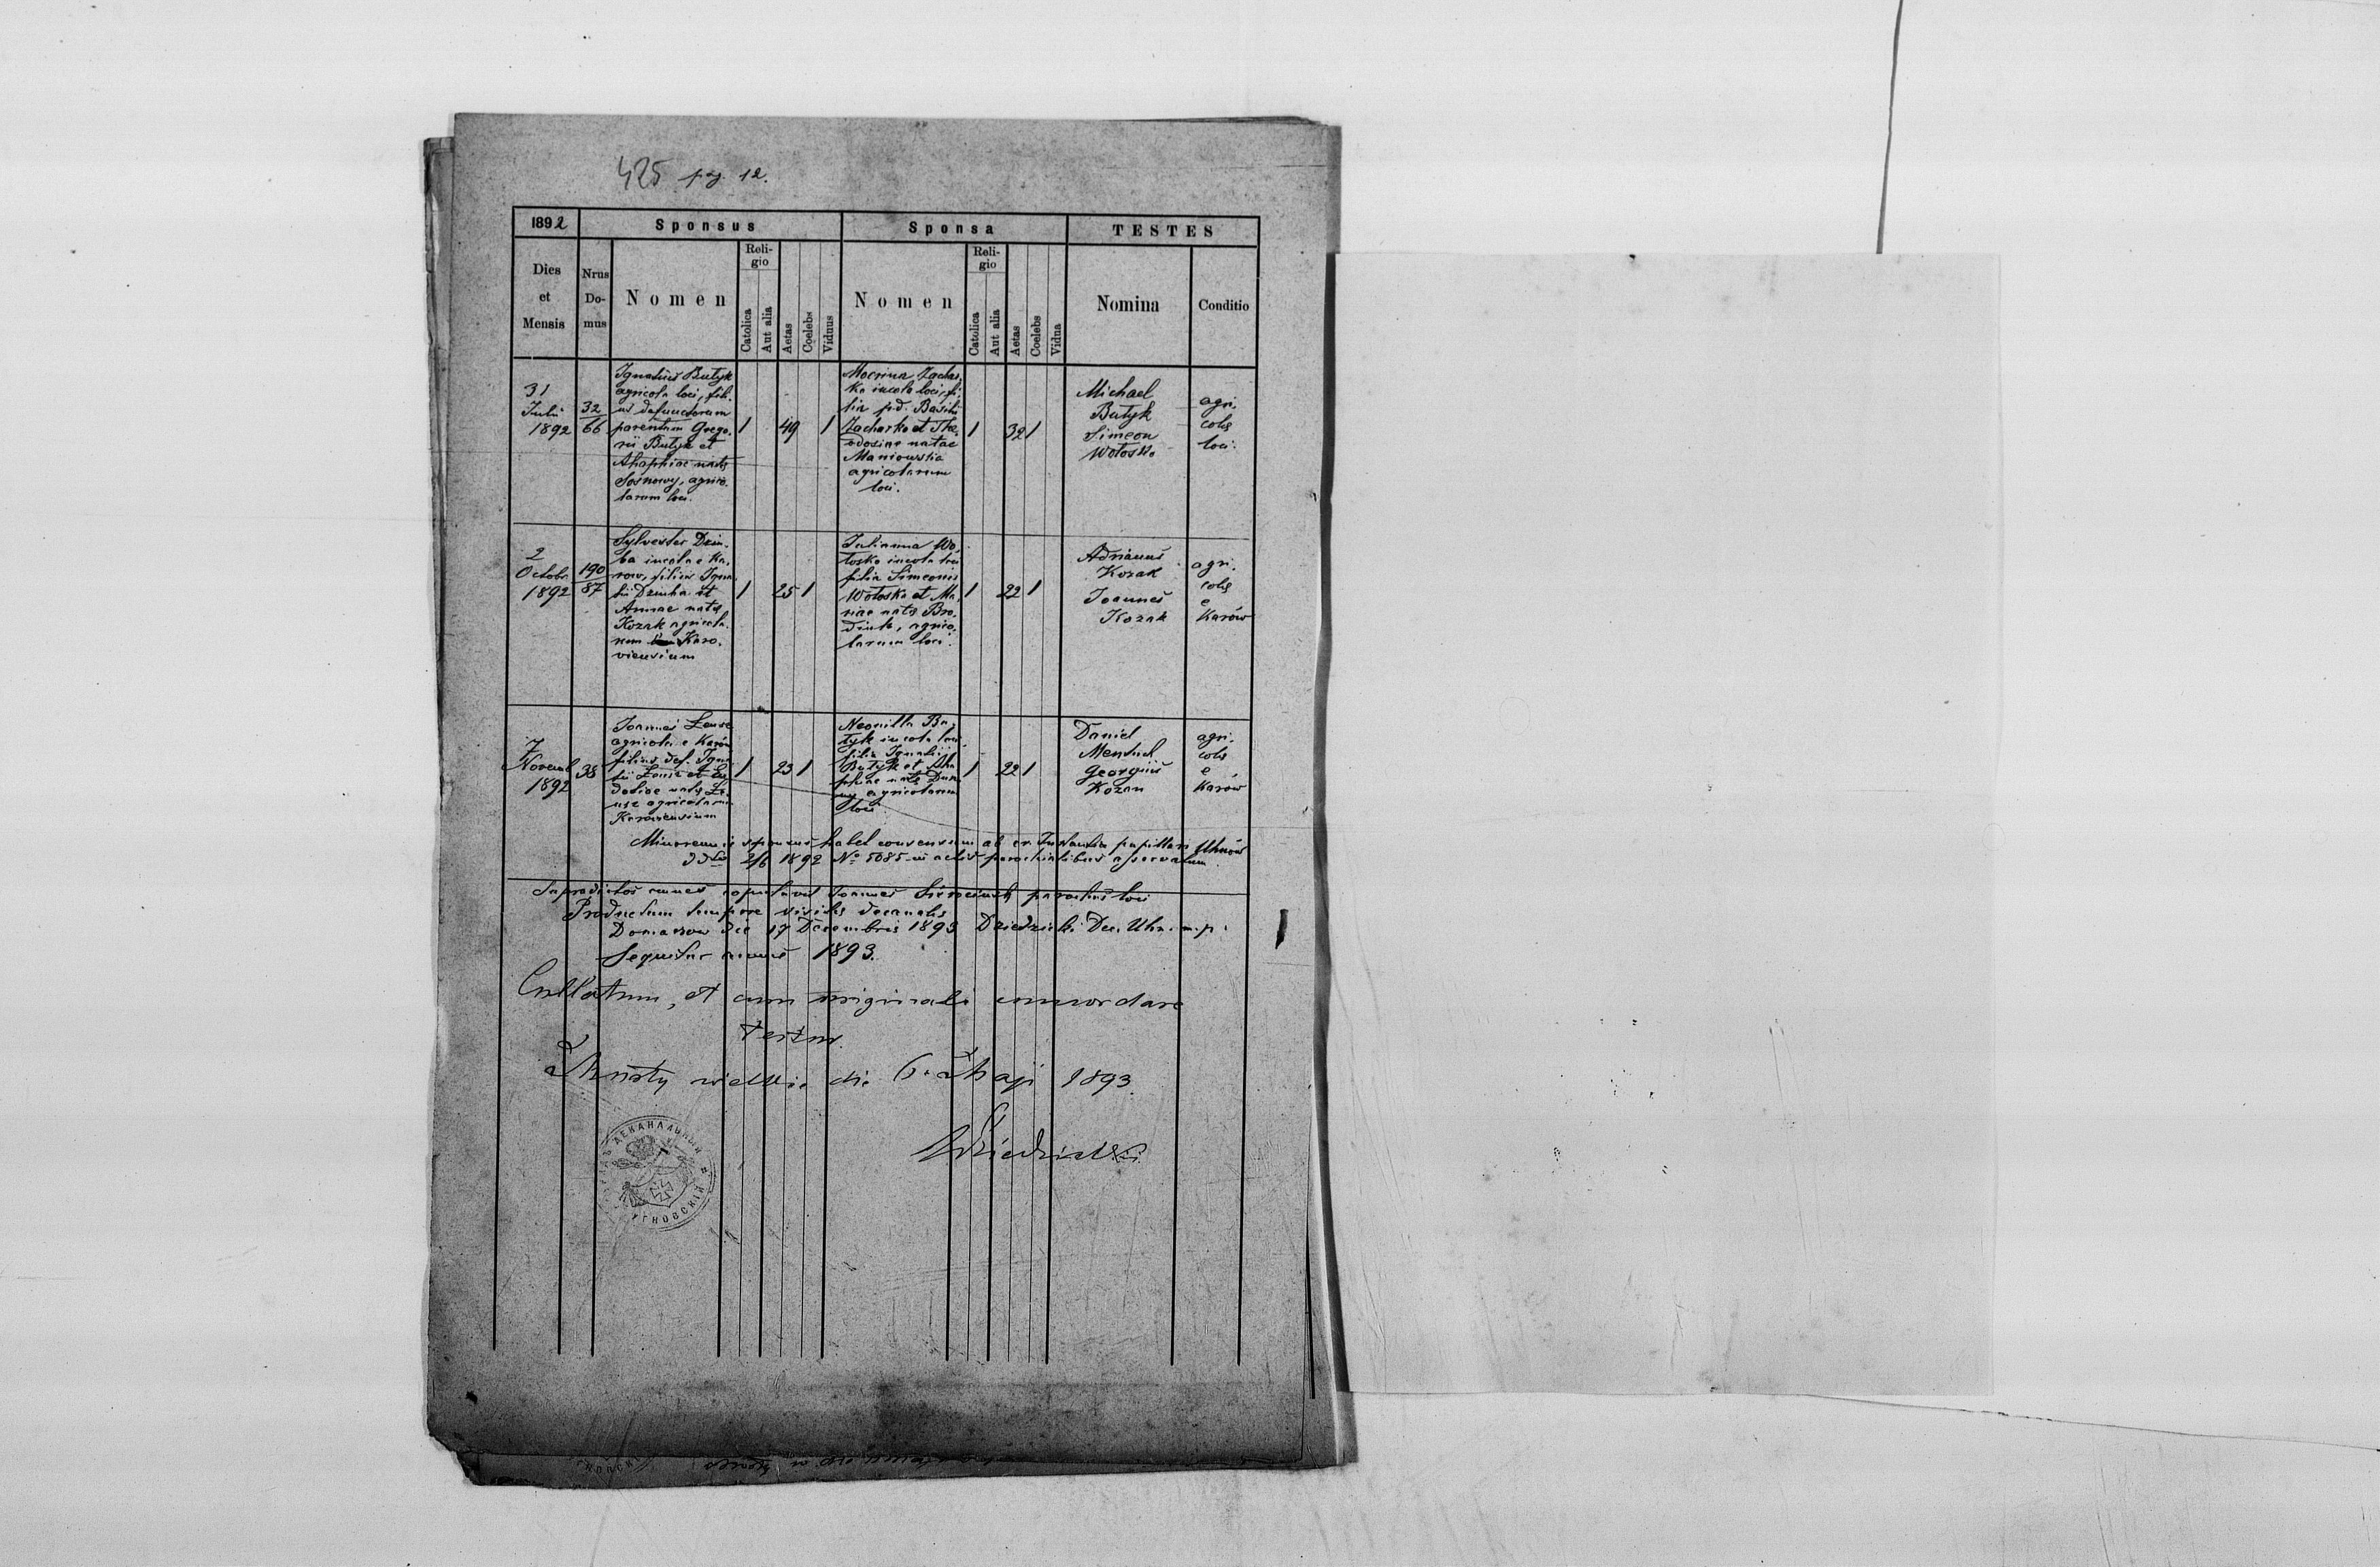 425 pag. 12.
1892 Sponsus Sponsa TESTES
Dies et Mensis
Nrus Do- mus
Nomen
Reli- gio
Catolica
Aut alia
Aetas
Coelebs
Viduus
Nomen
Reli- gio
Catolica
Aut alia
Aetas
Coelebs
Vidua
Nomina
Conditio
31
Julii
1892
32
66
Ignatius Butyk
agricola loci, fili-
us defunctorum
parentum Grego-
rii Butyk et
Ahaphiae natae
Sosnowy, agrico-
larum loci.
1 49 1
Macrina Zachar-
ko incola loci, fi-
lia p.d. Basilii
Zacharko et The-
odosiae natae
Maniowska
agricolarum
loci.
1 32 1
Michael
Butyk
Simeon
Wołosko
agri-
colae
loci.
2
Octobr
1892
190
87
Sylvester Dziu-
ba incola e Ka-
row, filius Igna-
tii Dziuba et
Annae natae
Kozak agricola-
rum Karo-
viensium
1 25 1
Julianna Wo-
łosko incola loci
filia Simeonis
Wołosko et Ma-
riae natae
agrico-
larum loci.
1 22 1
Adrianus
Kozak
Joannes
Kozak
agri-
colae
e
Karów
7
Novemb
1892
38
Joannes
agricola e Karów
filius def. Igna-
tii et
natae
agricolarum
Karoviensium
1 23 1
Neonilla Bu-
tyk incola loci
filia Ignatii
Butyk et Aha-
phiae natae
agricolarum
loci
1 22 1
Daniel
Georgius
Kozan
agri-
colae
e
Karów
Minorennis sponsus habet consensum ab Instantia pupillari Uhnów
2/6 1892 No 5085 in actis parochialibus asservatum
Supradictos omnes copulavit Joannes parochus loci
Productum tempore visitis decanalis
Domaszow die 17 Decembris 1893 Dziedzicki Dec. Uhn. m.p.
Sequitur annus 1893.
Collatum, et cum originali concordare
testor.
Mosty wielkie die 6. Maji 1893
Dziedzicki
ДЕКАНАЛЬНЫЙ
УГНОВСКІЙ